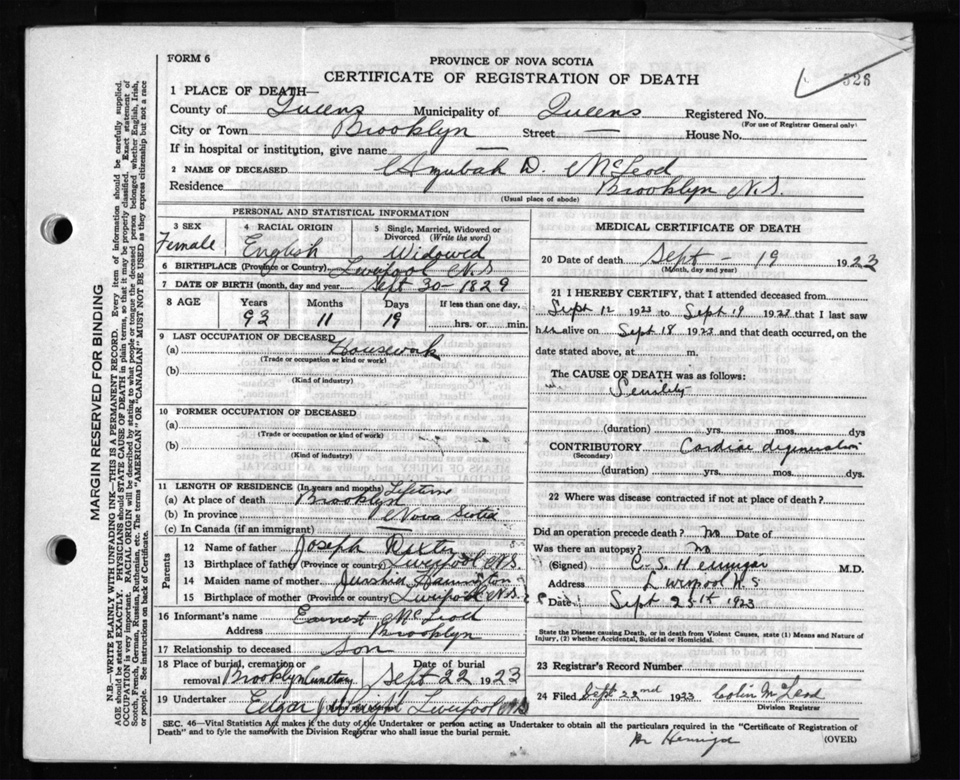 FORM 6
PROVINCE OF NOVA SCOTIA
CERTIFICATE OF REGISTRATION OF DEATH
526
1 PLACE OF DEATH—
County of Queens Municipality of Queens Registered No.
(For use of Registrar General only)
City or Town Brooklyn Street — House No.
If in hospital or institution, give name —
2 NAME OF DECEASED Azubah D. McLeod
Residence Brooklyn N.S.
(Usual place of abode)
PERSONAL AND STATISTICAL INFORMATION
3 SEX Female
4 RACIAL ORIGIN English
5 Single, Married, Widowed or Divorced (Write the word) Widowed
6 BIRTHPLACE (Province or Country) Liverpool N.S
7 DATE OF BIRTH (month, day and year) Sept 30 - 1829
8 AGE Years Months Days If less than one day,
93 11 19 hrs. or min.
9 LAST OCCUPATION OF DECEASED
(a) Housework
(Trade or occupation or kind or work)
(b)
(Kind of industry)
10 FORMER OCCUPATION OF DECEASED
(a)
(Trade or occupation or kind of work)
(b)
(Kind of industry)
11 LENGTH OF RESIDENCE (In years and months) Lifetime
(a) At place of death Brooklyn
(b) In province Nova Scotia
(c) In Canada (if an immigrant)
Parents
12 Name of father Joseph Dexter
13 Birthplace of father (Province or country) Liverpool N.S.
14 Maiden name of mother
15 Birthplace of mother (Province or country) Liverpool N.S.
16 Informant's name Earnest McLeod
Address Brooklyn
17 Relationship to deceased Son
18 Place of burial, cremation or removal Brooklyn Cemetary Date of burial Sept 22 1923
19 Undertaker Edgar Liverpool N.S
MEDICAL CERTIFICATE OF DEATH
20 Date of death Sept - 19 1923
(Month, day and year)
21 I HEREBY CERTIFY, that I attended deceased from
Sept 12 1923 to Sept 19 1923 that I last saw
her alive on Sept 18 1923 and that death occurred, on the
date stated above, at m.
The CAUSE OF DEATH was as follows:
Senility
(duration) yrs. mos. dys
CONTRIBUTORY Cardiac degeneration
(Secondary)
(duration) yrs. mos. dys.
22 Where was disease contracted if not at place of death?
Did an operation precede death? No Date of
Was there an autopsy? No
(Signed) C. S. Hennigar M.D.
Address Liverpool N.S
Date Sept 25th 1923
State the Disease causing Death, or in death from Violent Causes, state (1) Means and Nature of
Injury, (2) whether Accidental, Suicidal or Homicidal.
23 Registrar's Record Number
24 Filed Sept 22nd 1923 Colin McLeod
Division Registrar
SEC. 46—Vital Statistics Act makes it the duty of the Undertaker or person acting as Undertaker to obtain all the particulars required in the "Certificate of Registration of
Death" and to fyle the same with the Division Registrar who shall issue the burial permit.
(OVER)
MARGIN RESERVED FOR BINDING
N.B.—WRITE PLAINLY WITH UNFADING INK—THIS IS A PERMANENT RECORD. Every item of information should be carefully supplied.
AGE should be stated EXACTLY. PHYSICIANS should STATE CAUSE OF DEATH in plain terms, so that it may be properly classified. Exact statement of
OCCUPATION is very important. RACIAL ORIGIN will be described by stating to what people or tongue the deceased person belonged whether English, Irish,
Scotch, French, German, Russian, Ruthenian, etc. The terms "AMERICAN" OR "CANADIAN" MUST NOT BE USED as they express citizenship but not a race
of people. See instructions on back of Certificate.